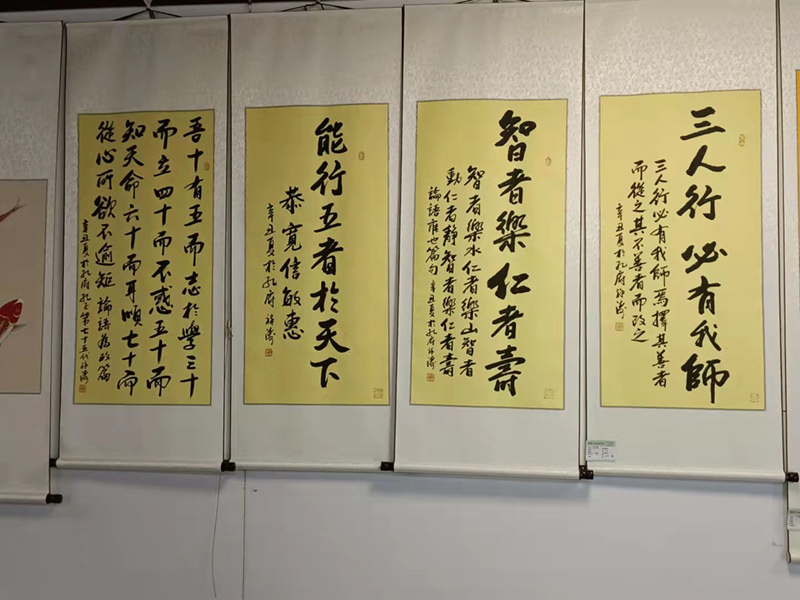 三人行必有我師
三人行必有我師焉擇其善者
而從之其不善者而改之
辛丑夏於孔府
智者樂仁者壽
智者樂水仁者樂山智者
動仁者靜智者樂仁者壽
論語雍也篇句 辛丑夏於孔府
能行五者於天下
恭寬信敏惠
辛丑夏於孔府
吾十有五而志於學三十
而立四十而不惑五十而
知天命六十而耳順七十而
從心所欲不逾矩 論語為政篇
辛丑夏於孔府 孔子第七十五代